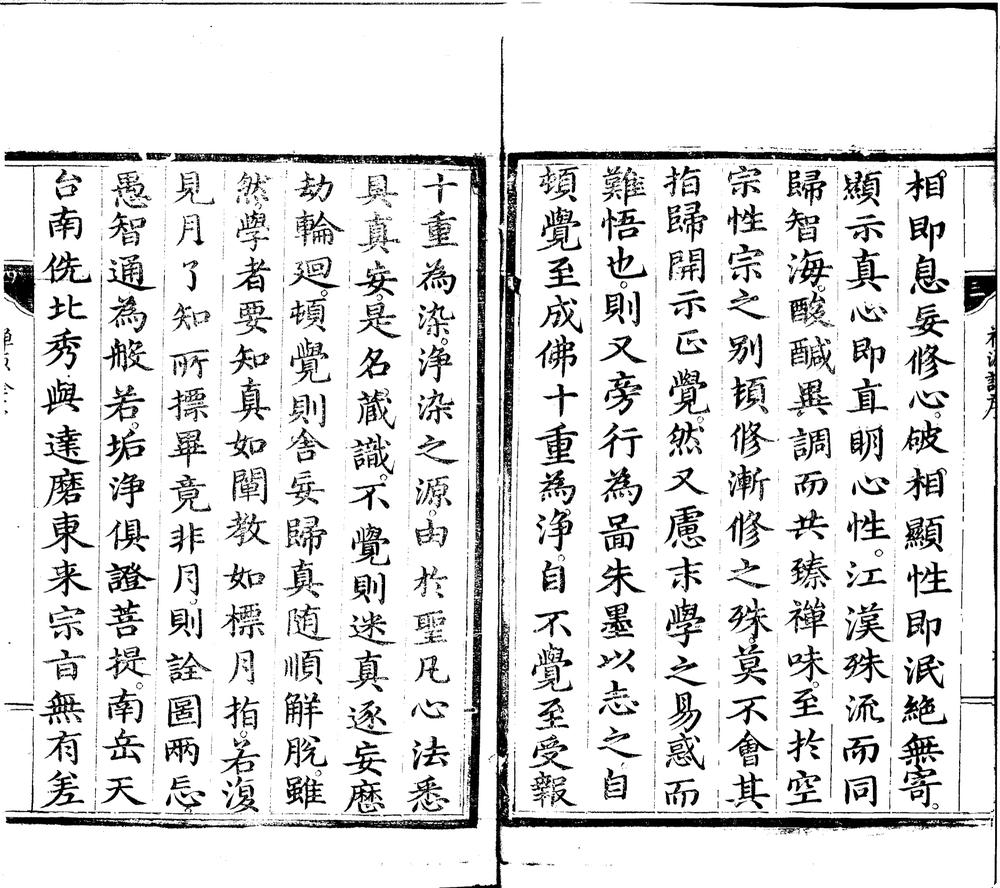 相即息妄修心。破相顯性即泯絶無寄。
顯示真心即直明心性。江漢殊流而同
歸智海。酸醎異調而共臻禪味。至扵空
宗性宗之别頓修漸修之殊。莫不會其
指歸開示正覺。然又慮末學之易惑而
難悟也。則又旁行為啚朱墨以志之自
頓覺至成佛十重為浄。自不覺至受報
十重為染。浄染之源。由於聖凡心法悉
具真妄。是名蔵識。不覺則迷真逐妄歷
劫輪廻。頓覺則舍妄歸真随順解脫。雖
然。學者要知真如闡教如標月指。若復
見月了知所摽畢竟非月。則詮圖兩忘。
愚智通為般若。垢浄俱證菩提。南岳天
台南侁北秀與達磨東来宗㫖無有差